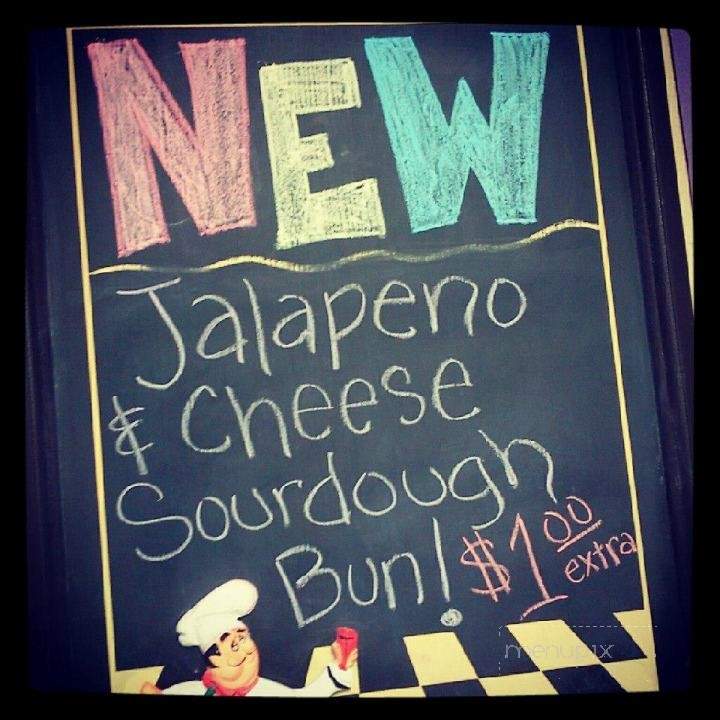 NEW
Jalapeno
& Cheese
Sourdough
Bun! $1.00
extra
menupix